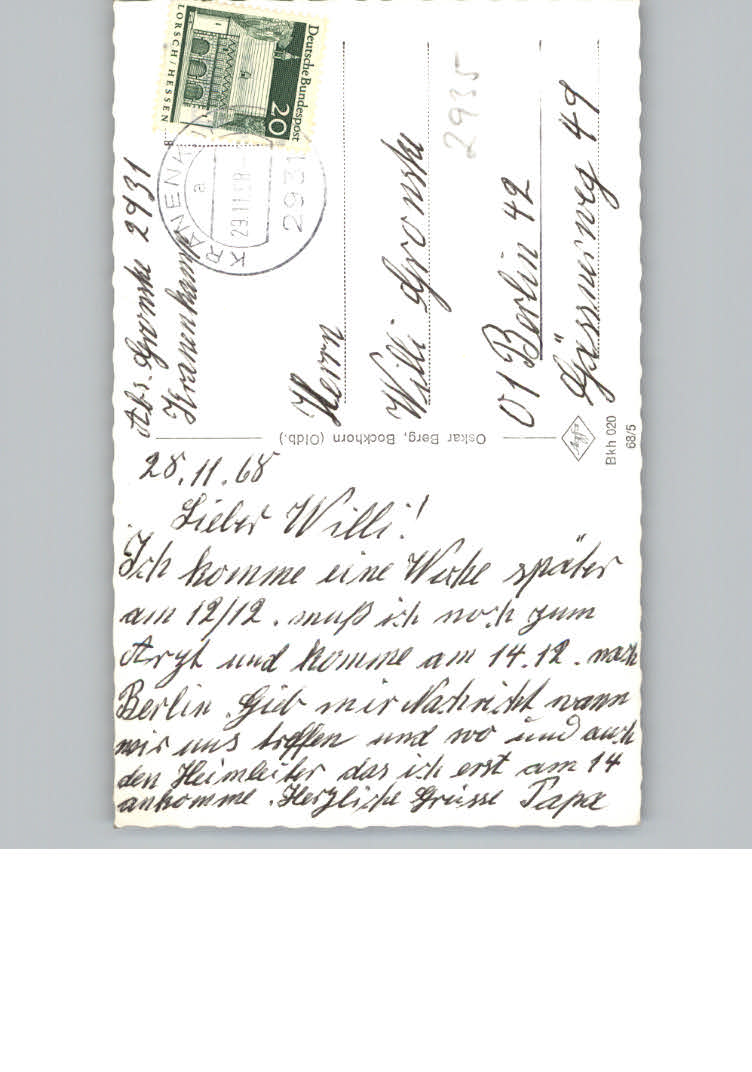 28.11.68
Lieber Willi!
Ich komme eine Woche später
am 12/12. muß ich noch zum
Arzt und komme am 14.12. nach
Berlin. Gieb mir Nachricht wann
wir uns treffen und wo und auch
den Heimleiter das ich erst am 14
ankomme. Herzliche Grüsse Papa
Abs. Gromske 2931
Kranenkamp
Herrn
Willi Gromske
01 Berlin 42
49
2935
Deutsche Bundespost
20
LORSCH/HESSEN
KRANENK
a
29.11.68
2931
Oskar Berg, Bockhorn (Oldb.)
Agfa
Bkh 020
68/5